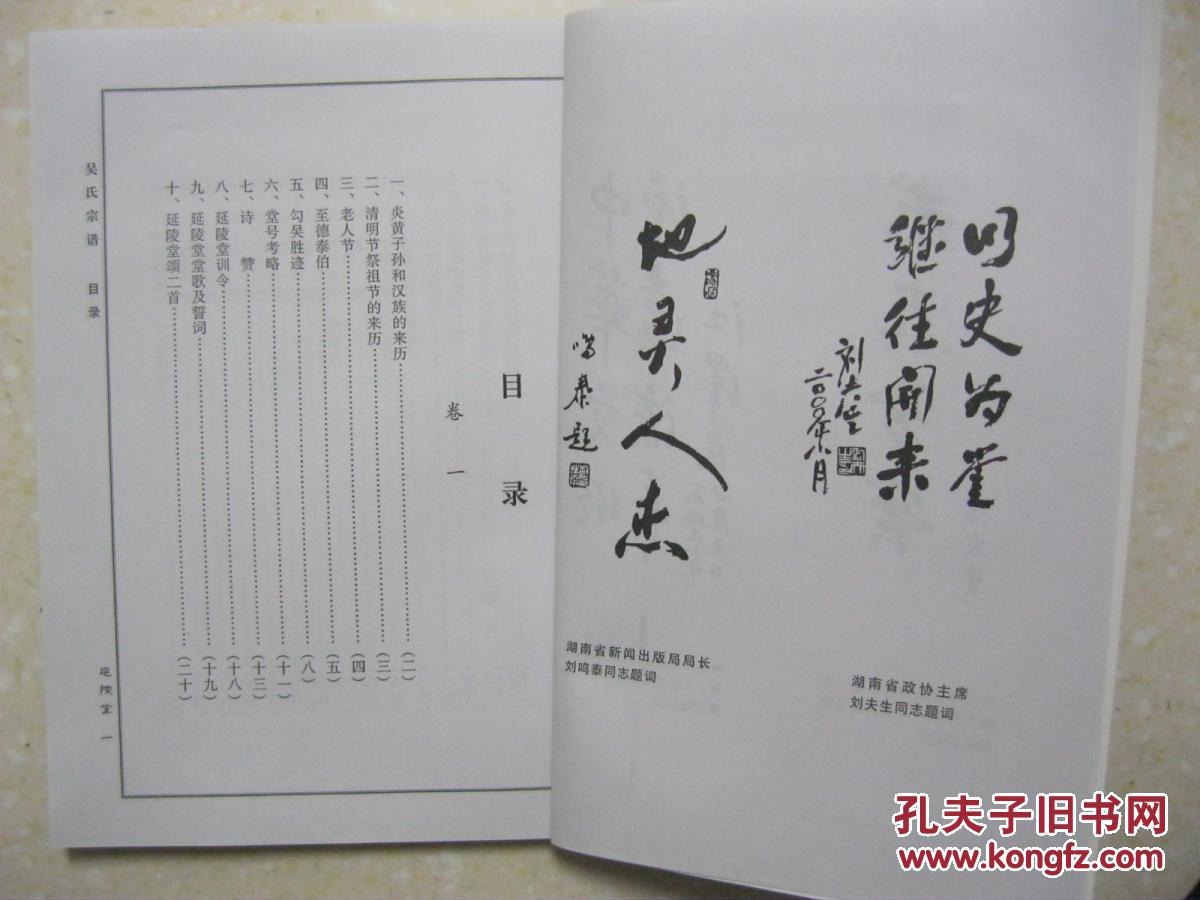 以史为鉴
继往开来
刘夫生
二〇〇〇年八月
湖南省政协主席
刘夫生同志题词
地灵人杰
鸣泰题
湖南省新闻出版局局长
刘鸣泰同志题词
目录
卷一
一、炎黄子孙和汉族的来历……(二)
二、清明节祭祖节的来历……(三)
三、老人节……(四)
四、至德泰伯……(五)
五、勾吴胜迹……(八)
六、堂号考略……(十一)
七、诗 赞……(十三)
八、延陵堂训令……(十八)
九、延陵堂堂歌及誓词……(十九)
十、延陵堂颂二首……(二十)
吴氏宗谱 目录
延陵堂 一
孔夫子旧书网
www.kongfz.com